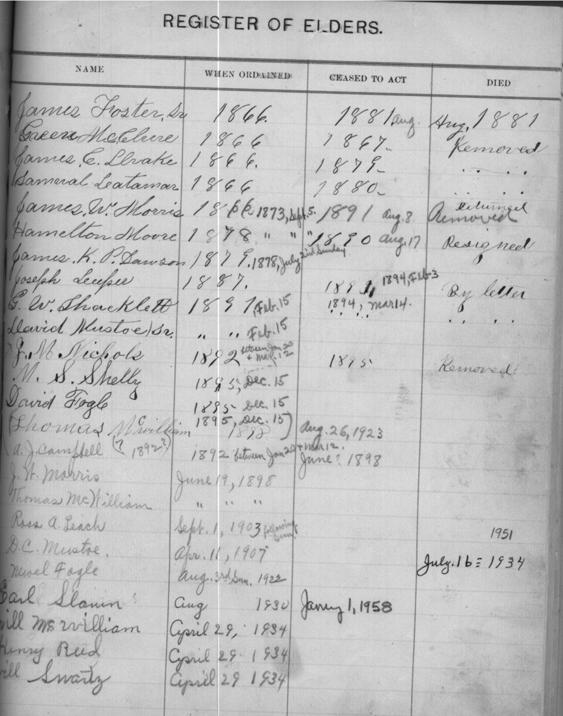 REGISTER OF ELDERS.
NAME WHEN ORDAINED CEASED TO ACT DIED
James Foster, Sr 1866. 1881 Aug. Aug, 1881
Green McClure 1866 1867. Removed
James, C. Drake 1866. 1879. " "
Sameral Leatamar 1866 1880. " "
James, W. Morris 1873, Sept. 5. 1891 Aug. 8 Removed
Hamelton Moore 1878 " " 1890 Aug. 17 Resigned
James. K. P. Lawson 1879. 1878, July 2nd Sunday
Joseph 1887. 1894, Feb. 3 By letter
E. W. Shacklett 1891, Feb. 15 1894, Mar 14. " "
David Mustoe, Sr. " " Feb. 15 " " " "
J. M. Nichols 1892 between Jan 20 + Mar. 12 1895 Removed
M. S. Shelly 1895, Dec. 15
David Fogle 1895 Dec. 15
(Thomas McWilliam 1895, Dec. 15) 1898 Aug. 26, 1923
A. J. Campbell (? 1892?) 1892 between Jan 20 + Mar 12. June? 1898
J. W. Morris June 19, 1898
Thomas McWilliam " " "
Ross A. Leach Sept. 1, 1903 following 1951
D. C. Mustoe. Apr. 11, 1907 July. 16 = 1934
Newel Fogle Aug. 3rd Sun. 1922
Earl Slavin Aug 1930 Janry 1, 1958
Will McWilliam April 29, 1934
Henry Reed April 29 1934
Will Swartz April 29 1934